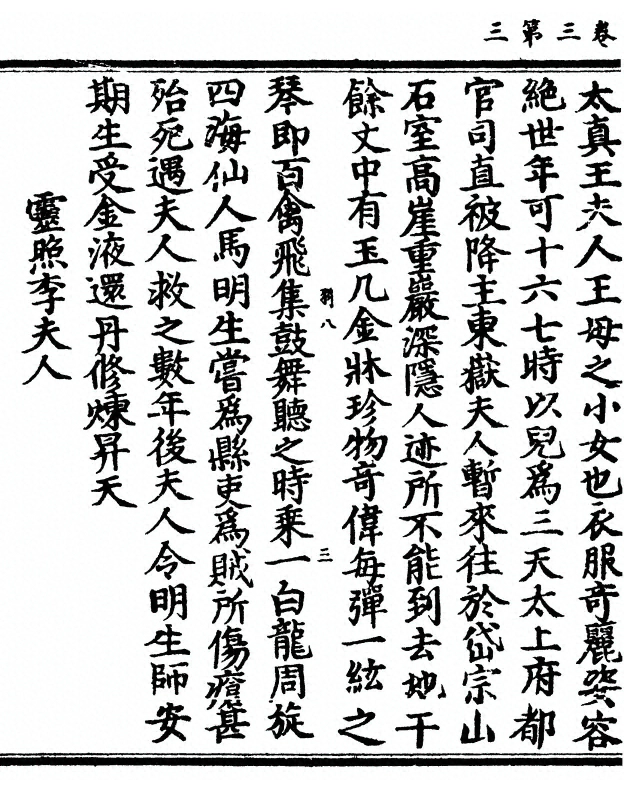 卷三第三
太真王夫人王母之小女也衣服奇麗姿容
絕世年可十六七時以兒為三天太上府都
官司直被降主東嶽夫人暫來往於岱宗山
石室高崖重巖深隱人迹所不能到去地千
餘丈中有玉几金牀珍物奇偉每彈一絃之
琴即百禽飛集鼓舞聽之時乘一白龍周旋
斟八
三
四海仙人馬明生嘗為縣吏為賊所傷瘡甚
殆死遇夫人救之數年後夫人令明生師安
期生受金液還丹修煉昇天
靈照李夫人